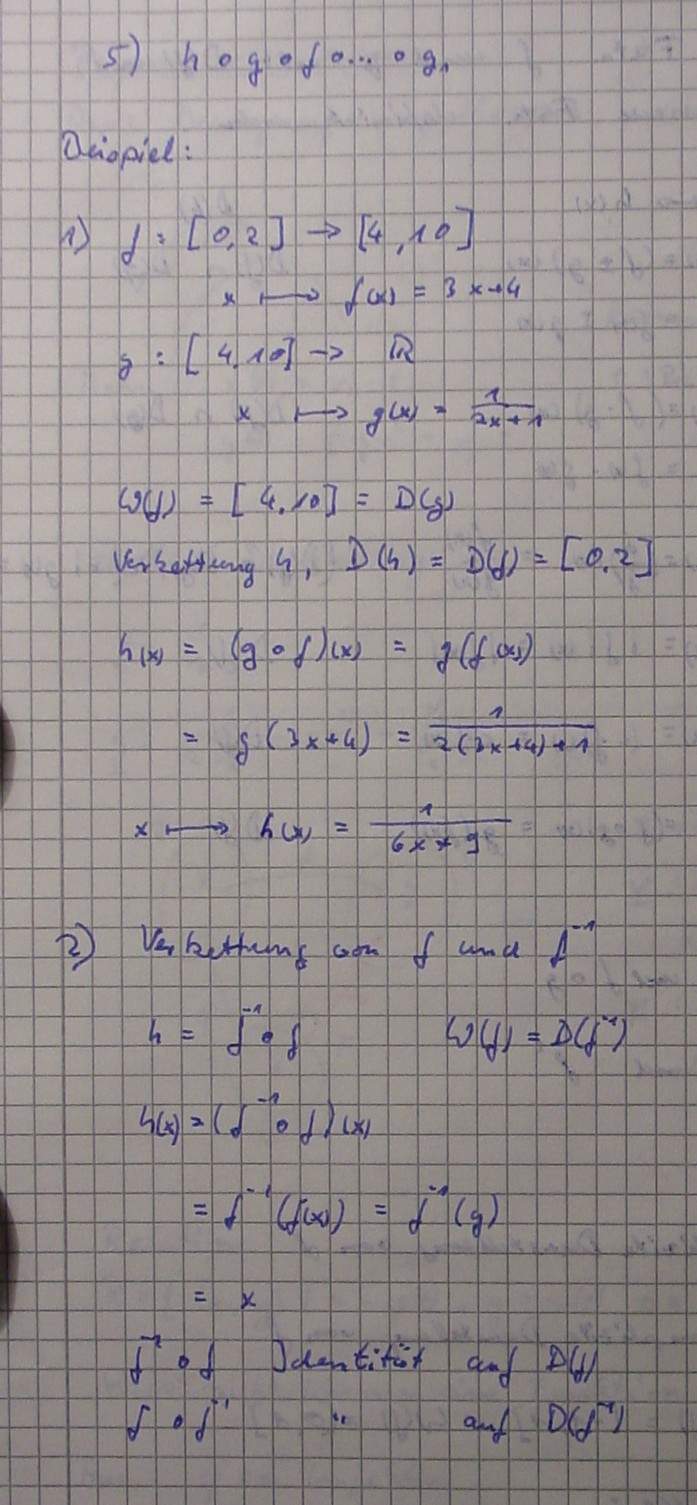 5) h ∘ g ∘ f ∘ ... ∘ g,
Beispiel:
1) f : [0,2] → [4,10]
x ⟼ f(x) = 3x+4
g : [4,10] → ℝ
x ⟼ g(x) = 1/(2x+1)
W(f) = [4,10] = D(g)
Verkettung h, D(h) = D(f) = [0,2]
h(x) = (g ∘ f)(x) = g(f(x))
= g(3x+4) = 1/(2(3x+4)+1)
x ⟼ h(x) = 1/(6x+9)
2) Verkettung von f und f⁻¹
h = f⁻¹ ∘ f W(f) = D(f⁻¹)
h(x) = (f⁻¹ ∘ f)(x)
= f⁻¹(f(x)) = f⁻¹(y)
= x
f⁻¹ ∘ f Identität auf D(f)
f ∘ f⁻¹ " auf D(f⁻¹)